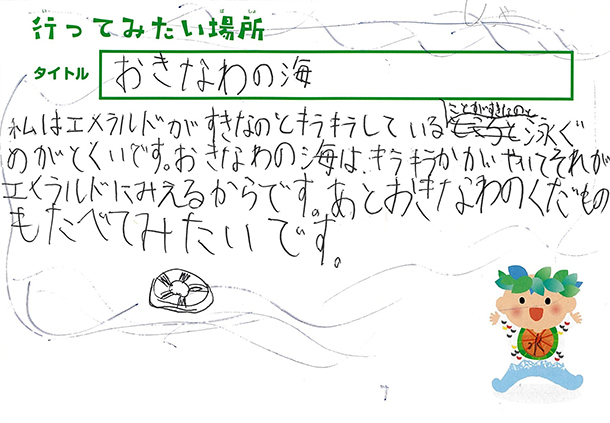 行ってみたい場所
タイトル おきなわの海
私はエメラルドがすきなのとキラキラしていることがすきなのと泳ぐ
のがとくいです。おきなわの海は、キラキラかがやいてそれが
エメラルドにみえるからです。あとおきなわのくだもの
もたべてみたいです。